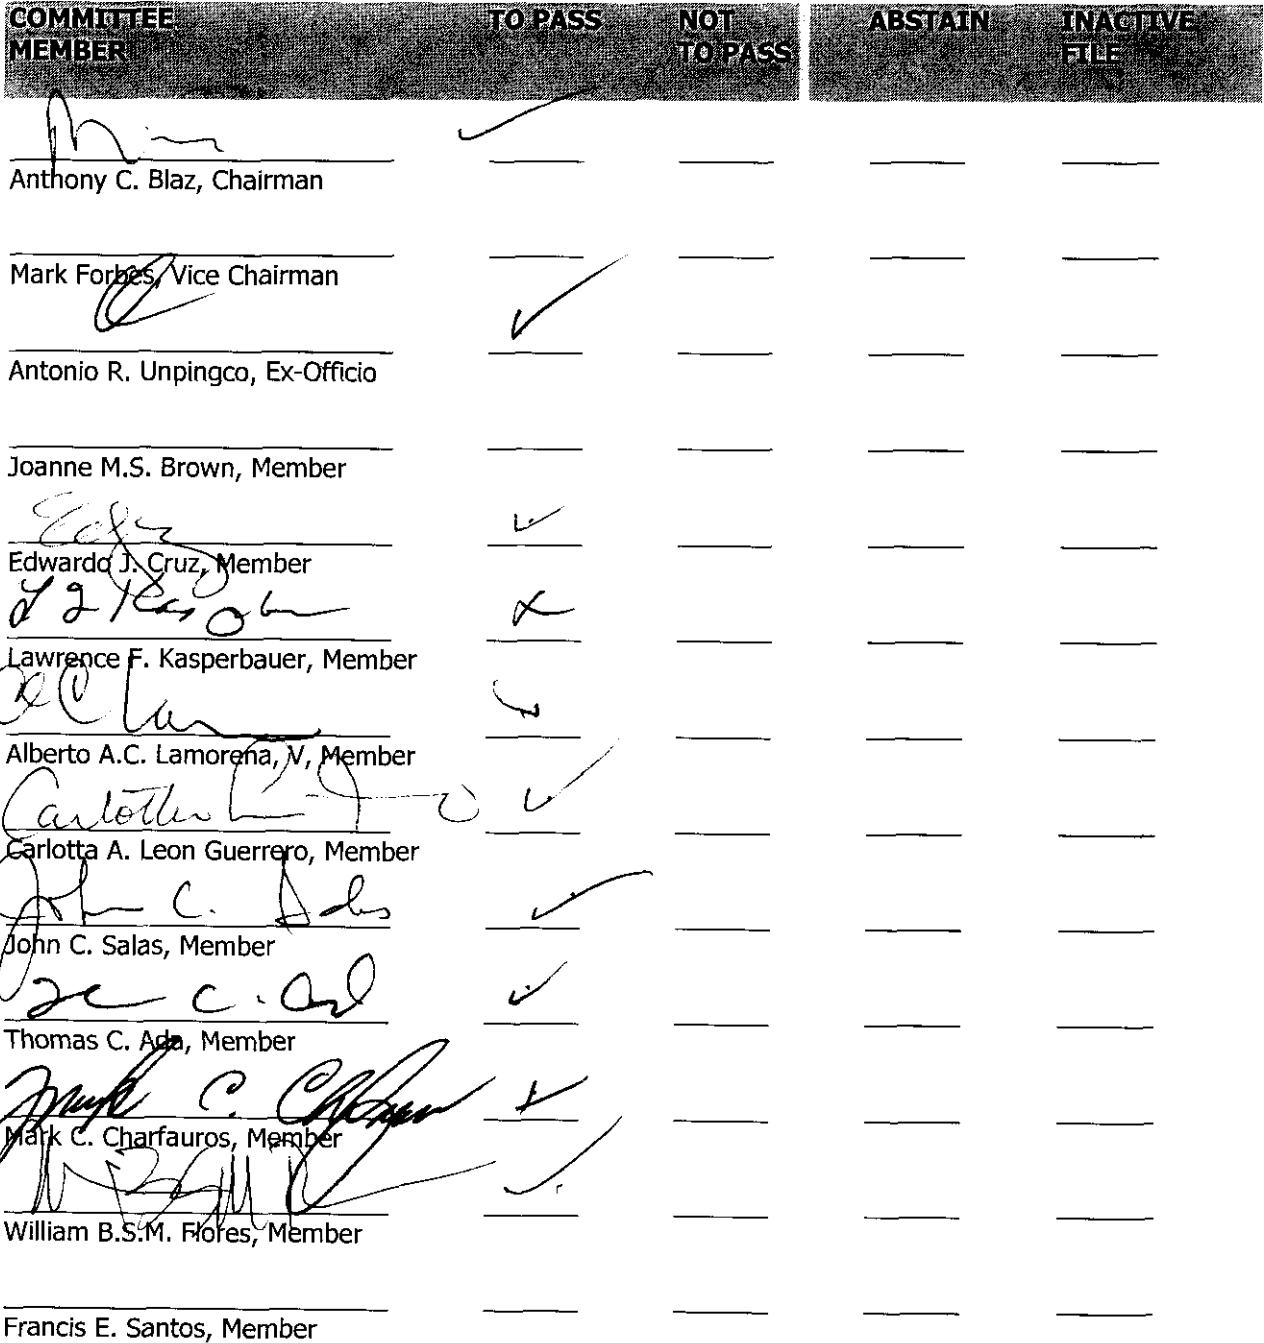 COMMITTEE MEMBER TO PASS NOT TO PASS ABSTAIN INACTIVE FILE
Anthony C. Blaz, Chairman
Mark Forbes, Vice Chairman
Antonio R. Unpingco, Ex-Officio
Joanne M.S. Brown, Member
Edwardo J. Cruz, Member
Lawrence F. Kasperbauer, Member
Alberto A.C. Lamorena, V, Member
Carlotta A. Leon Guerrero, Member
John C. Salas
John C. Salas, Member
Thomas C. Ada, Member
Mark C. Charfauros, Member
William B.S.M. Flores, Member
Francis E. Santos, Member